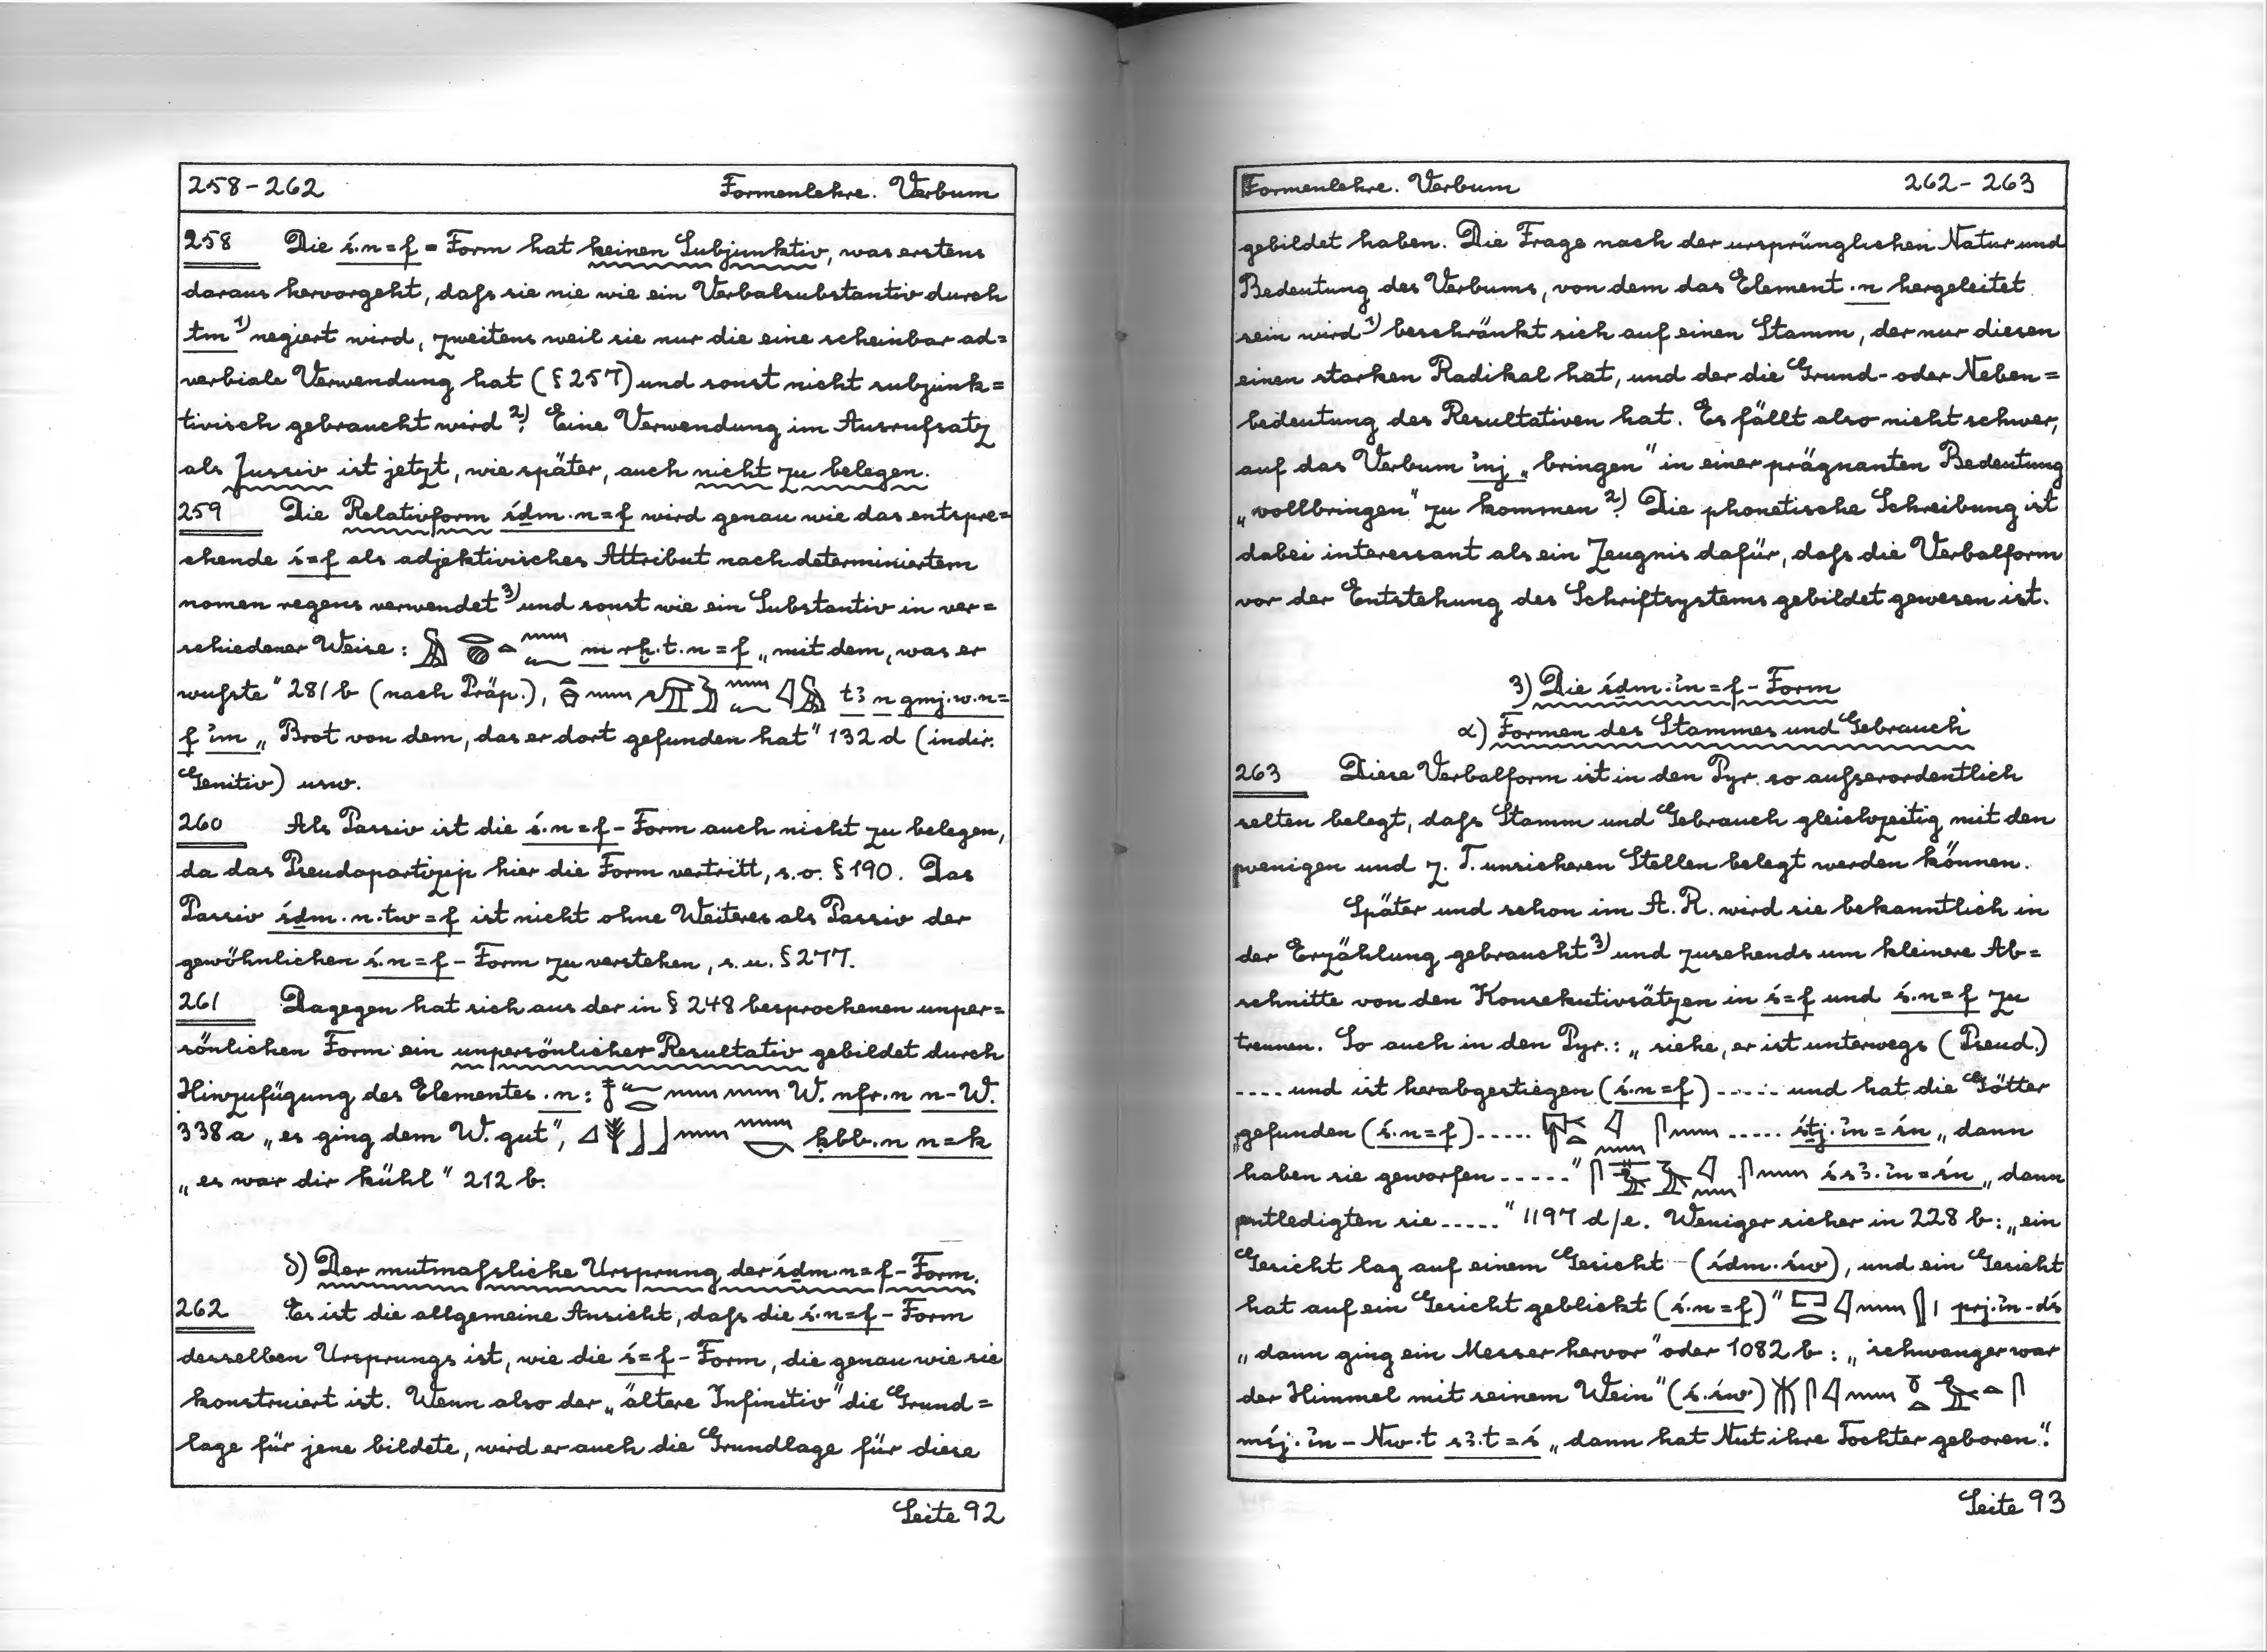 258-262 Formenlehre. Verbum
258 Die ś.n=f = Form hat keinen Subjunktiv, was erstens
daraus hervorgeht, daſs sie nie wie ein Verbalsubstantiv durch
tm 1) negiert wird, zweitens weil sie nur die eine scheinbar ad=
verbiale Verwendung hat (§ 257) und sonst nicht subjunk=
tivisch gebraucht wird 2). Eine Verwendung im Ausrufsatz
als Jussiv ist jetzt, wie später, auch nicht zu belegen.
259 Die Relativform śḏm.n=f wird genau wie das entspre=
chende ś=f als adjektivisches Attribut nach determiniertem
nomen regens verwendet 3) und sonst wie ein Substantiv in ver=
schiedener Weise: m rḫ.t.n=f „mit dem, was er
wuſste" 281 b (nach Präp.), t3 n gmj.w.n=
f i̓m „Brot von dem, das er dort gefunden hat" 132 d (indir.
Genitiv) usw.
260 Als Passiv ist die ś.n=f-Form auch nicht zu belegen,
da das Pseudopartizip hier die Form vertritt, s.o. § 190. Das
Passiv śḏm.n.tw=f ist nicht ohne Weiteres als Passiv der
gewöhnlichen ś.n=f-Form zu verstehen, s.u. § 277.
261 Dagegen hat sich aus der in § 248 besprochenen unper=
sönlichen Form ein unpersönlicher Resultativ gebildet durch
Hinzufügung des Elementes .n: W. nfr.n n-W.
338 a „es ging dem W. gut", ḳbb.n n=k
„es war dir kühl" 212 b.
δ) Der mutmaſsliche Ursprung der śḏm.n=f-Form.
262 Es ist die allgemeine Ansicht, daſs die ś.n=f-Form
desselben Ursprungs ist, wie die ś=f-Form, die genau wie sie
konstruiert ist. Wenn also der „ältere Infinitiv" die Grund=
lage für jene bildete, wird er auch die Grundlage für diese
Seite 92
Formenlehre. Verbum 262-263
gebildet haben. Die Frage nach der ursprünglichen Natur und
Bedeutung des Verbums, von dem das Element .n hergeleitet
sein wird 1) beschränkt sich auf einen Stamm, der nur diesen
einen starken Radikal hat, und der die Grund- oder Neben=
bedeutung des Resultativen hat. Es fällt also nicht schwer,
auf das Verbum i̓nj „bringen" in einer prägnanten Bedeutung
„vollbringen" zu kommen 2). Die phonetische Schreibung ist
dabei interessant als ein Zeugnis dafür, daſs die Verbalform
vor der Entstehung des Schriftsystems gebildet gewesen ist.
3) Die śḏm.i̓n=f-Form
α) Formen des Stammes und Gebrauch
263 Diese Verbalform ist in den Pyr. so auſserordentlich
selten belegt, daſs Stamm und Gebrauch gleichzeitig mit den
wenigen und z. T. unsicheren Stellen belegt werden können.
Später und schon im A. R. wird sie bekanntlich in
der Erzählung gebraucht 3) und zusehends um kleinere Ab=
schnitte von den Konsekutivsätzen in ś=f und ś.n=f zu
trennen. So auch in den Pyr.: „siehe, er ist unterwegs (Pseud.)
.... und ist herabgestiegen (ś.n=f) ..... und hat die Götter
gefunden (ś.n=f)..... ..... śtj.i̓n=śn „dann
haben sie geworfen ....." śs3.i̓n=śn „dann
entledigten sie ....." 1197 d/e. Weniger sicher in 228 b: „ein
Gesicht lag auf einem Gesicht (śḏm.św), und ein Gesicht
hat auf ein Gesicht geblickt (ś.n=f)" prj.i̓n-dś
„dann ging ein Messer hervor" oder 1082 b: „schwanger war
der Himmel mit seinem Wein" (ś.św)
mśj.i̓n-Nw.t s3.t=ś „dann hat Nut ihre Tochter geboren".
Seite 93